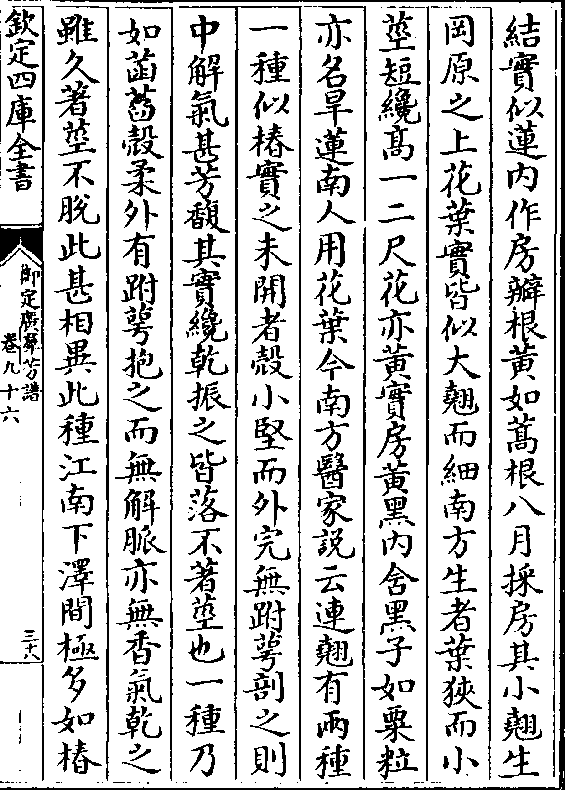 結實似蓮内作房瓣根黄如蒿根八月採房其小翹生
岡原之上花葉實皆似大翹而細南方生者葉狹而小
莖短纔髙一二尺花亦黄實房黄黑内含黑子如粟粒
亦名旱蓮南人用花葉今南方醫家説云連翹有兩種
一種似椿實之未開者殻小堅而外完無跗萼剖之則
中解氣甚芳馥其實纔乾振之皆落不著莖也一種乃
如菡萏殻柔外有跗萼抱之而無解脈亦無香氣乾之
雖久著莖不脱此甚相異此種江南下澤間極多如椿
欽定四庫全書
御定廣羣芳譜
卷九十六
三十八